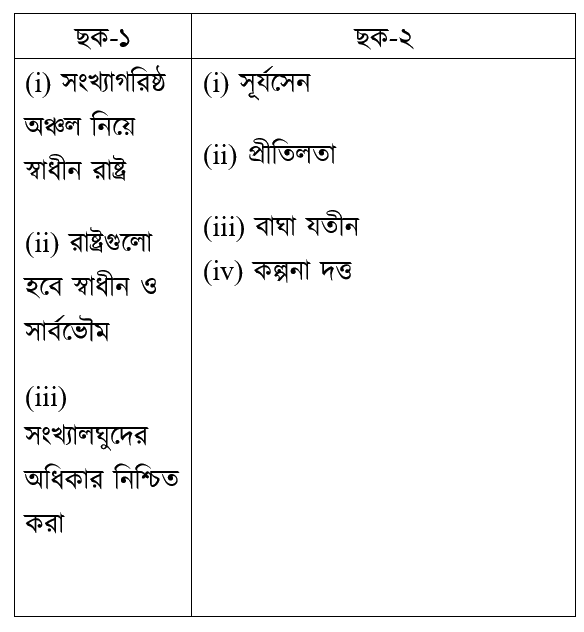 ছক-১
ছক-২
(i) সংখ্যাগরিষ্ঠ
অঞ্চল নিয়ে
স্বাধীন রাষ্ট্র
(ii) রাষ্ট্রগুলো
হবে স্বাধীন ও
সার্বভৌম
(iii)
সংখ্যালঘুদের
অধিকার নিশ্চিত
করা
(i) সূর্যসেন
(ii) প্রীতিলতা
(iii) বাঘা যতীন
(iv) কল্পনা দত্ত